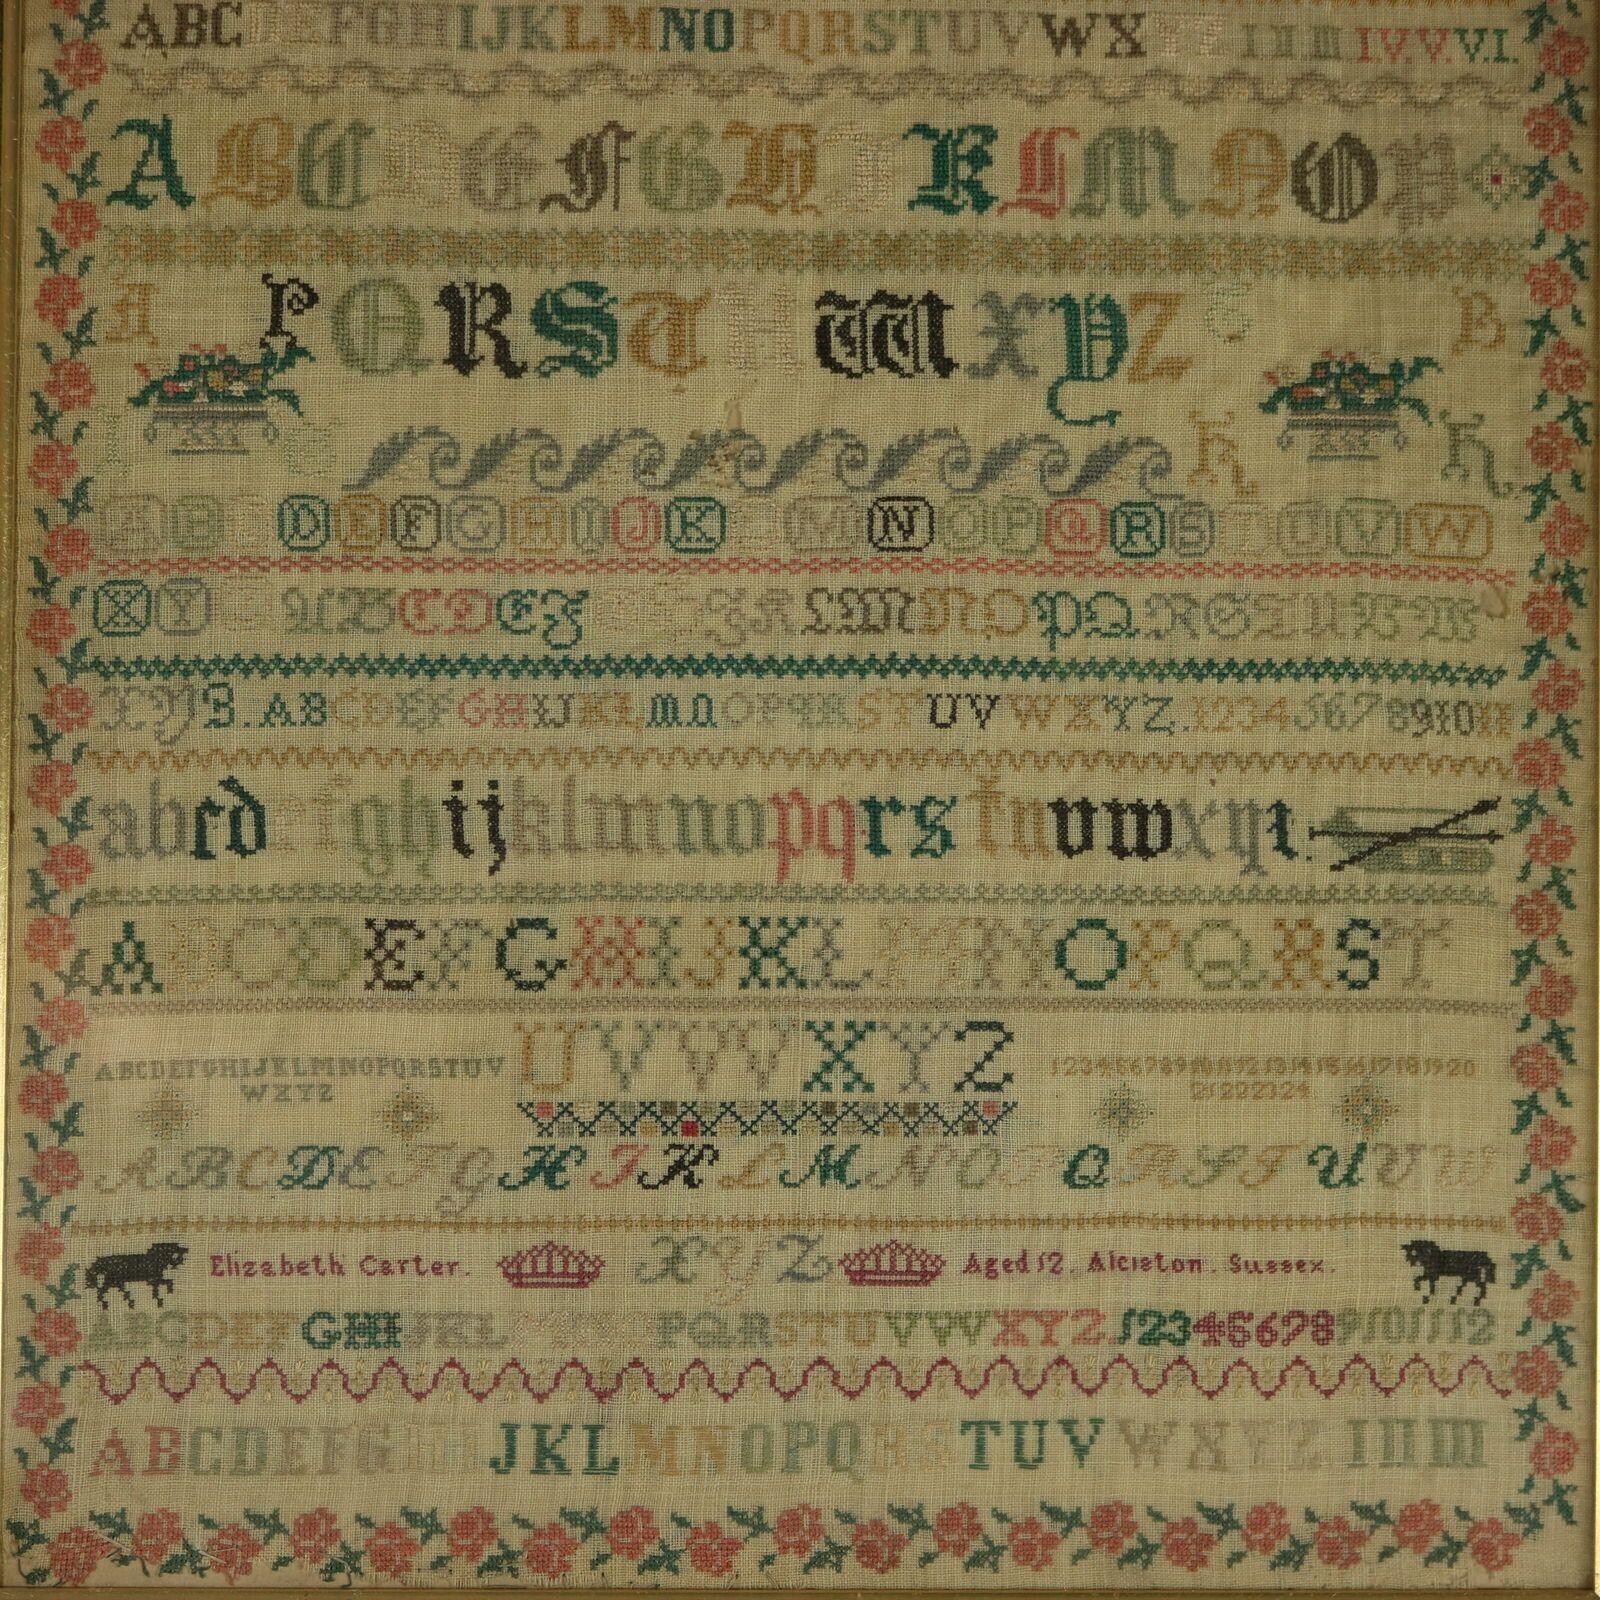 ABCDEFGHIJKLMNOPQRSTUVWXYZ I II III I.V.V.VI.
ABCDEFGHIJKLMNOP
A PQRSTUWXYZ G B
I C H H
ABCDEFGHIJKLMNOPQRSTUVW
XYZ ABCDEFGHIJKLMNOPQRSTUVW
XYZ. ABCDEFGHIJKLMNOPQRSTUVWXYZ. 1234567891011
abcdefghijklmnopqrstuvwxyz.
ABCDEFGHIJKLMNOPQRST
ABCDEFGHIJKLMNOPQRSTUV
WXYZ
UVWXYZ
1234567891011121314151617181920
21222324
ABCDEFGHIJKLMNOPQRSTUVW
Elizabeth Carter. XYZ Aged 12. Alciston. Sussex.
ABCDEFGHIJKLMNOPQRSTUVWXYZ. 123456789101112
ABCDEFGHIJKLMNOPQRSTUVWXYZ I II III